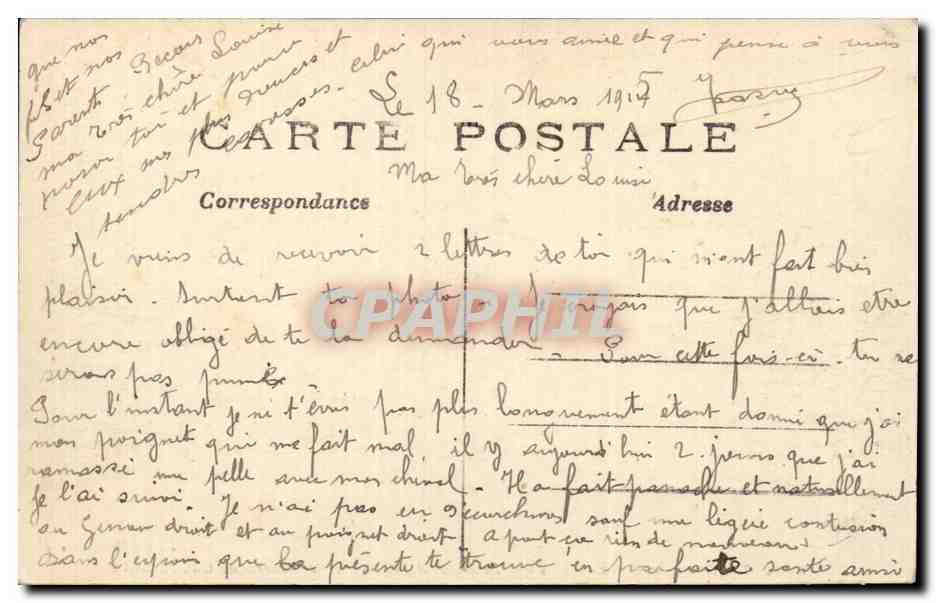 Le 18 - Mars 1917
CARTE POSTALE
Ma très chère Louise
Correspondance Adresse
Je viens de recevoir 2 lettres de toi qui m'ont fait bien
plaisir. Surtout ta photo. Je croyais que j'allais être
encore obligé de te la demander. Pour cette fois-ci tu ne
seras pas punie.
Pour l'instant je ne t'écris pas plus longuement étant donné que j'ai
mon poignet qui me fait mal, il y aujourd'hui 2 jours que j'ai
ramassé une pelle avec mon cheval. Il a fait panache et naturellement
Je l'ai suivi. Je n'ai pas eu d'écorchures sauf une légère contusion
au Genou droit et au poignet droit. a part ça rien de nouveau.
Dans l'espoir que la présente te trouve en parfaite santé ainsi
que nos
et nos
Parents Reçois
ma très chère Louise
pour toi et pour
eux mes plus douces et
tendres caresses. celui qui vous aime et qui pense à vous
CPAPHIL